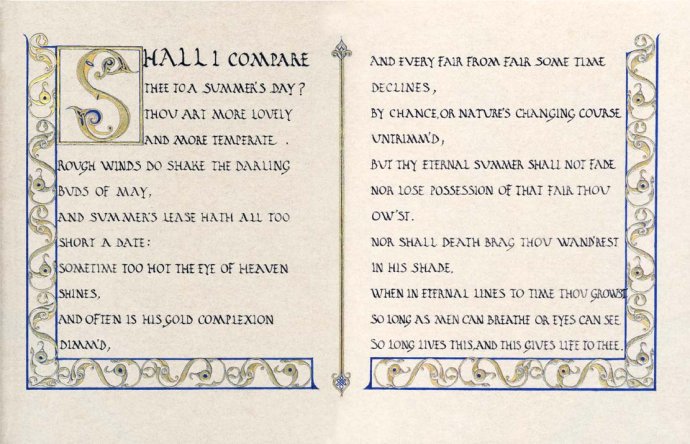 SHALL I COMPARE
THEE TO A SUMMER'S DAY?
THOU ART MORE LOVELY
AND MORE TEMPERATE.
ROUGH WINDS DO SHAKE THE DARLING
BUDS OF MAY,
AND SUMMER'S LEASE HATH ALL TOO
SHORT A DATE:
SOMETIME TOO HOT THE EYE OF HEAVEN
SHINES,
AND OFTEN IS HIS GOLD COMPLEXION
DIMM'D,
AND EVERY FAIR FROM FAIR SOME TIME
DECLINES,
BY CHANCE, OR NATURE'S CHANGING COURSE
UNTRIMM'D;
BUT THY ETERNAL SUMMER SHALL NOT FADE
NOR LOSE POSSESSION OF THAT FAIR THOU
OW'ST.
NOR SHALL DEATH BRAG THOU WAND'REST
IN HIS SHADE,
WHEN IN ETERNAL LINES TO TIME THOU GROWST
SO LONG AS MEN CAN BREATHE OR EYES CAN SEE
SO LONG LIVES THIS, AND THIS GIVES LIFE TO THEE.